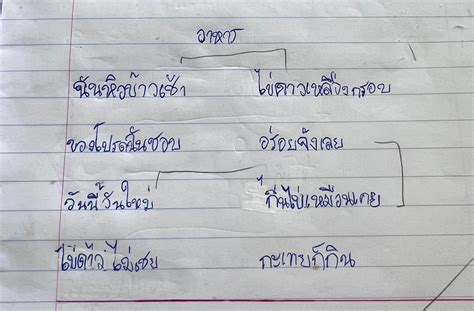 อาหาร
ฉันหิวข้าวเช้า ไข่ดาวเหลืองกรอบ
ของโปรดฉันชอบ อร่อยจังเลย
วันนี้วันใหม่ กินไข่เหมือนเคย
ไข่ดาว ไม่เชย กะเทยก็กิน